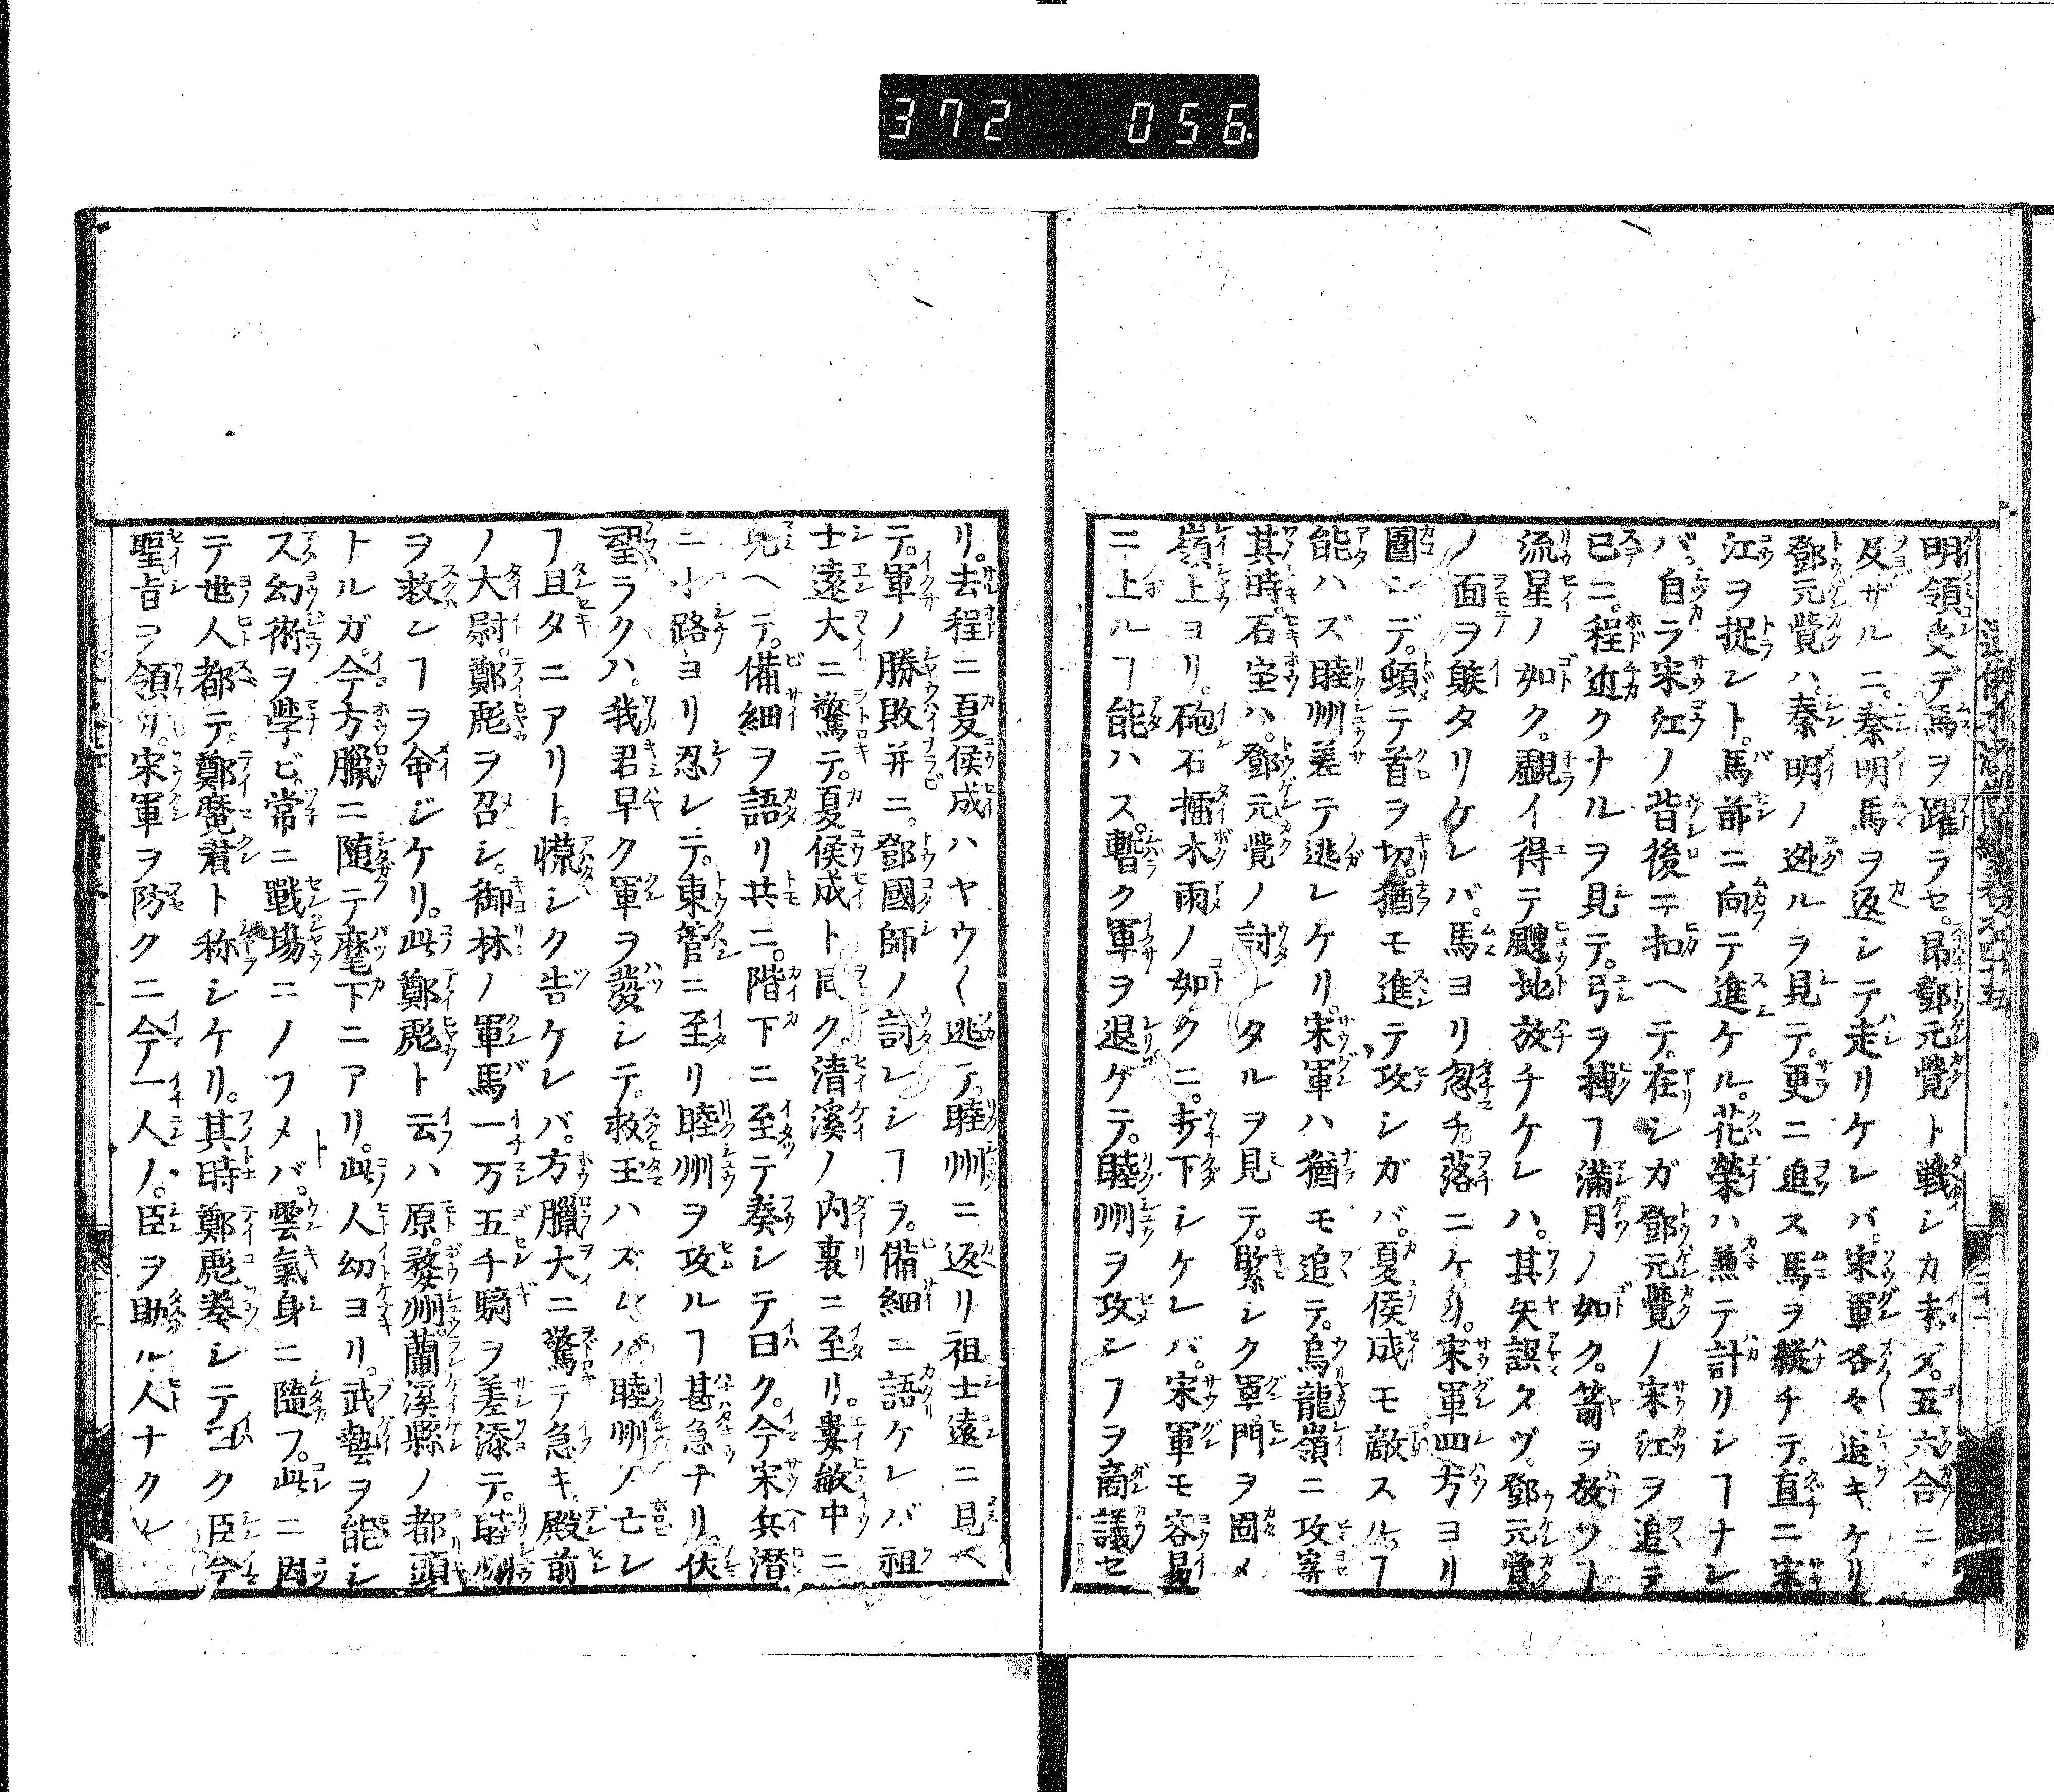 372 056
明領受デ馬ヲ躍ラセ。昂鄧元覺ト戦シカ未ダ。五六合ニ
及ザルニ。秦明馬ヲ返シテ走リケレバ。宋軍各々退キケリ
鄧元覺ハ。秦明ノ逃ルヲ見テ。更ニ追ス馬ヲ縦チテ。直ニ宋
江ヲ捉ント。馬前ニ向テ進ケル。花榮ハ兼テ計リシヿナレ
バ。自ラ宋江ノ背後ニ扣ヘテ。在シガ鄧元覺ノ宋江ヲ追テ
已ニ。程近クナルヲ見テ。弓ヲ拽ヿ滿月ノ如ク。箭ヲ放ツヿ
流星ノ如ク。覷イ得テ颼地放チケレハ。其矢誤タズ。鄧元覺
ノ面ヲ㷟タリケレバ。馬ヨリ忽チ落ニケリ。宋軍四方ヨリ
圍ンデ。頓テ首ヲ切。猶モ進テ攻シガバ。夏侯成モ敵スルヿ
能ハズ睦州差テ逃レケリ。宋軍ハ猶モ追テ。烏龍嶺ニ攻寄
其時。石宝ハ。鄧元覺ノ討レタルヲ見テ。緊シク軍門ヲ固メ
嶺上ヨリ。砲石擂木雨ノ如クニ。步下シケレバ。宋軍モ容易
ニ上ルヿ能ハス。暫ク軍ヲ退ゲテ。睦州ヲ攻ンヿヲ商議セ
リ。去程ニ夏侯成ハヤウ〱逃テ。睦州ニ返リ祖士遠ニ見ヘ
テ。軍ノ勝敗并ニ。鄧國師ノ討レシヿヲ。備細ニ語ケレバ祖
士遠大ニ驚テ。夏侯成ト同ク清溪ノ内裏ニ至リ。婁敏中ニ
見ヘテ。備細ヲ語リ共ニ。階下ニ至テ奏シテ曰ク。今宋兵潜
ニ小路ヨリ忍レテ。東管ニ至リ睦州ヲ攻ルヿ甚急ナリ。伏
望ラクハ。我君早ク軍ヲ發シテ。救玉ハズンバ睦州ノ亡レ
ヿ且タニアリト。慌シク告ケレバ。方臘大ニ驚テ急キ。殿前
ノ大尉。鄭彪ヲ召シ。御林ノ軍馬一万五千騎ヲ差添テ。睦州
ヲ救レヿヲ命ジケリ。此鄭彪ト云ハ原。婺州。蘭溪縣ノ都頭
トルガ。今方臘ニ随テ麾下ニアリ。此人幼ヨリ。武藝ヲ能シ
ス幻術ヲ學ビ。常ニ戰場ニノフメバ。雲氣身ニ隨フ。此ニ因
テ世人都テ。鄭魔君ト称シケリ。其時鄭彪奏シテ曰ク臣今
聖旨ヲ領リ。宋軍ヲ防クニ今一人ノ。臣ヲ助ル人ナクレ